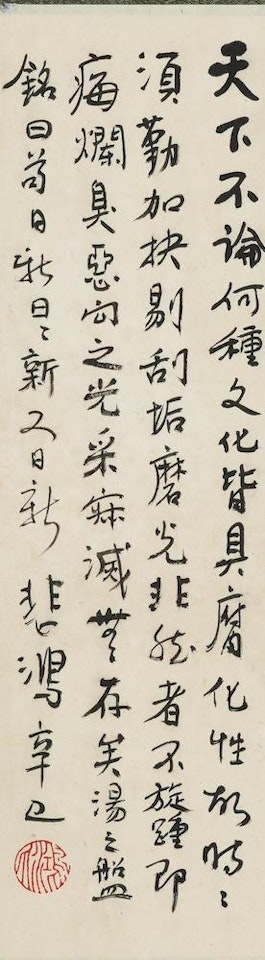 天下不論何種文化皆具腐化性故時〻
須勤加抉剔刮垢磨光非然者不旋踵即
痛爛臭惡向之光采寂滅無存矣湯之盤
銘曰苟日新日〻新又日新 悲鴻 辛巳